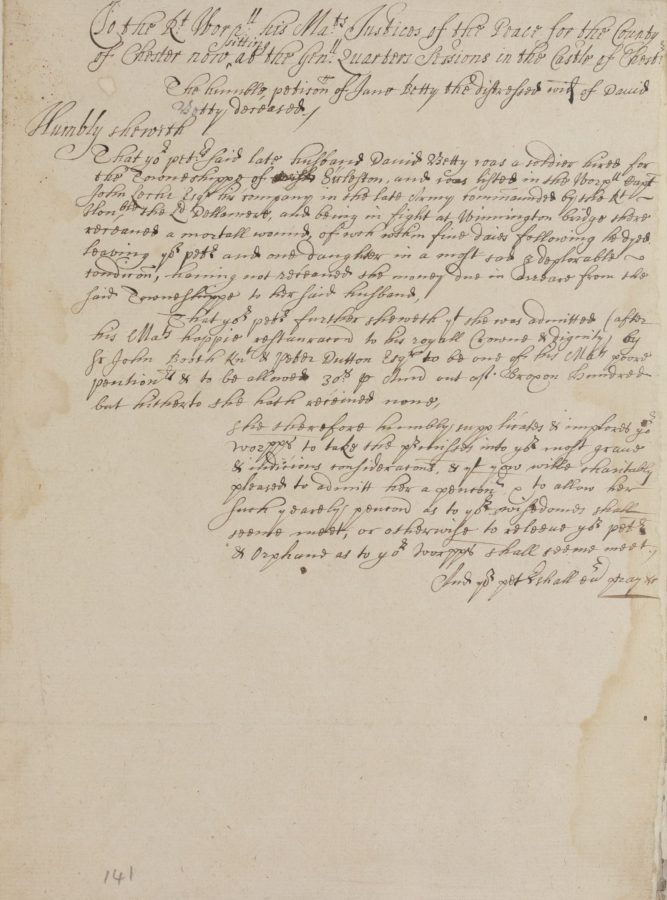 To the Rt Worpll his Mats Justices of the Peace for the County
of Chester now sitting at the Genll Quarters Sessions in the Castle of Chestr
The humble peticon of Jane Betty the distressed wife of David
Betty deceased /
Humbly sheweth
That yor petrs said late husband David Betty was a soldier hired for
the Towneshippe of Eccleston, and was listed in the Worpll Capt
John Leche Esqr his company in the late Army commaunded by the Rt
Honble the Ld Dellamere, and being in fight at Winnington bridge there
receaved a mortall wound, of wch within five daies following he dyed
leaving yor petr and one daughter in a most sad & deplorable
condicon, having not receaved the money due in Arreare from the
said Towneshippe to her said husband,
That yor petr further sheweth yt she was admitted (after
his Mats happie restauracon to his royall Crowne & Dignity) by
Sr John Booth Knt & Peter Dutton Esqr to be one of his Mats poore
pentioners & to be allowed 30s p Annu out of Broxon Hundred
but hitherto she hath received none,
She therefore humbly supplicates & implores yor
Worpps to take the prmisses into yor most grave
& iudicious consideracons, & yt yow wilbe charitably
pleased to admitt her a penconr & to allow her
such yearely pencon as to yor wisedomes shall
seeme meet, or otherwise to releeve yor petr
& Orphane as to yor Worpps shall seeme meet,
And yor petr shall ever pray &c
141